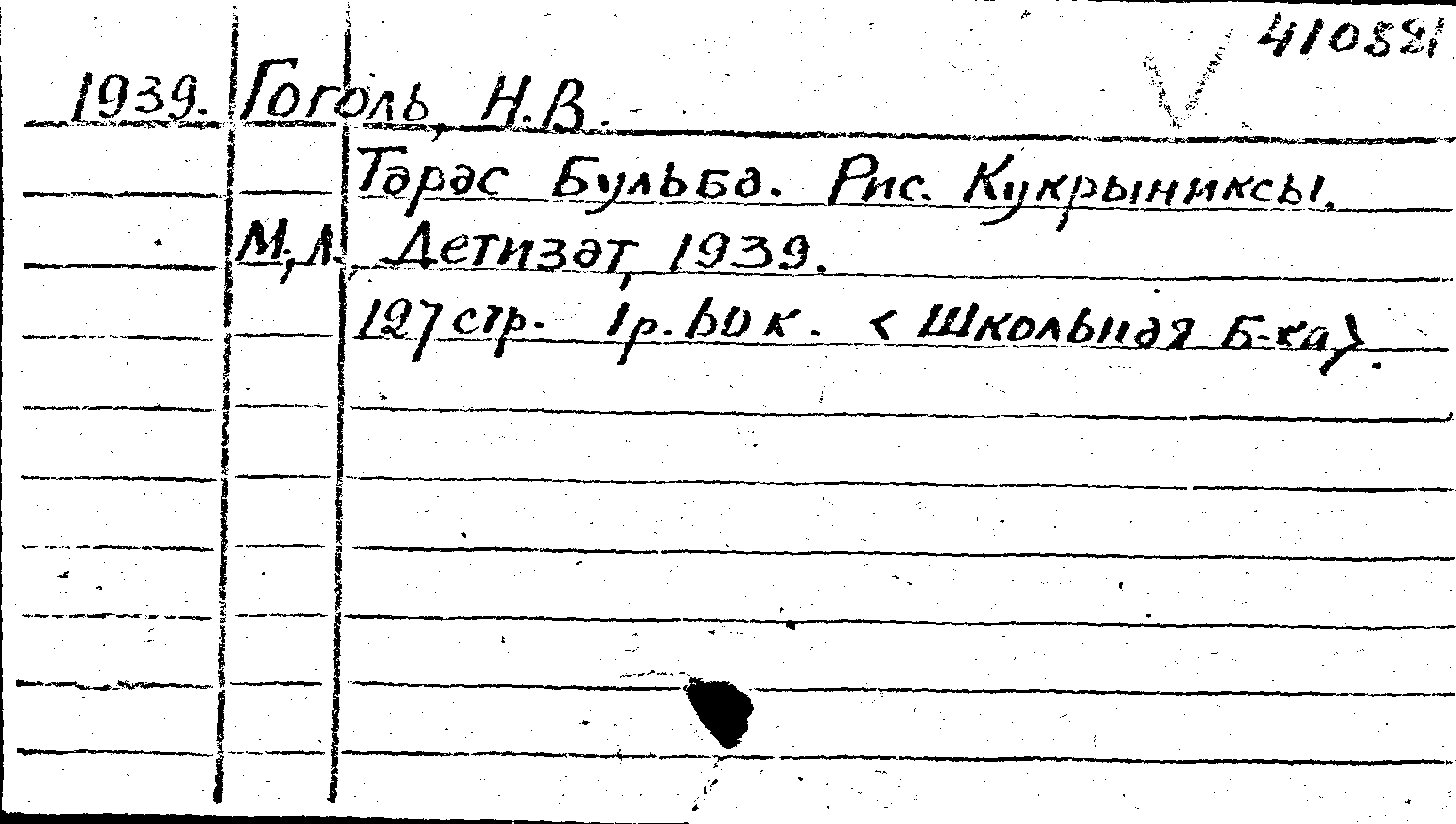 410521
1939. Гоголь, Н.В.
Тарас Бульба. Рис. Кукрыниксы.
М.,Л., Детиздат, 1939.
127 стр. 1р. 60 к. <Школьная Б-ка>.